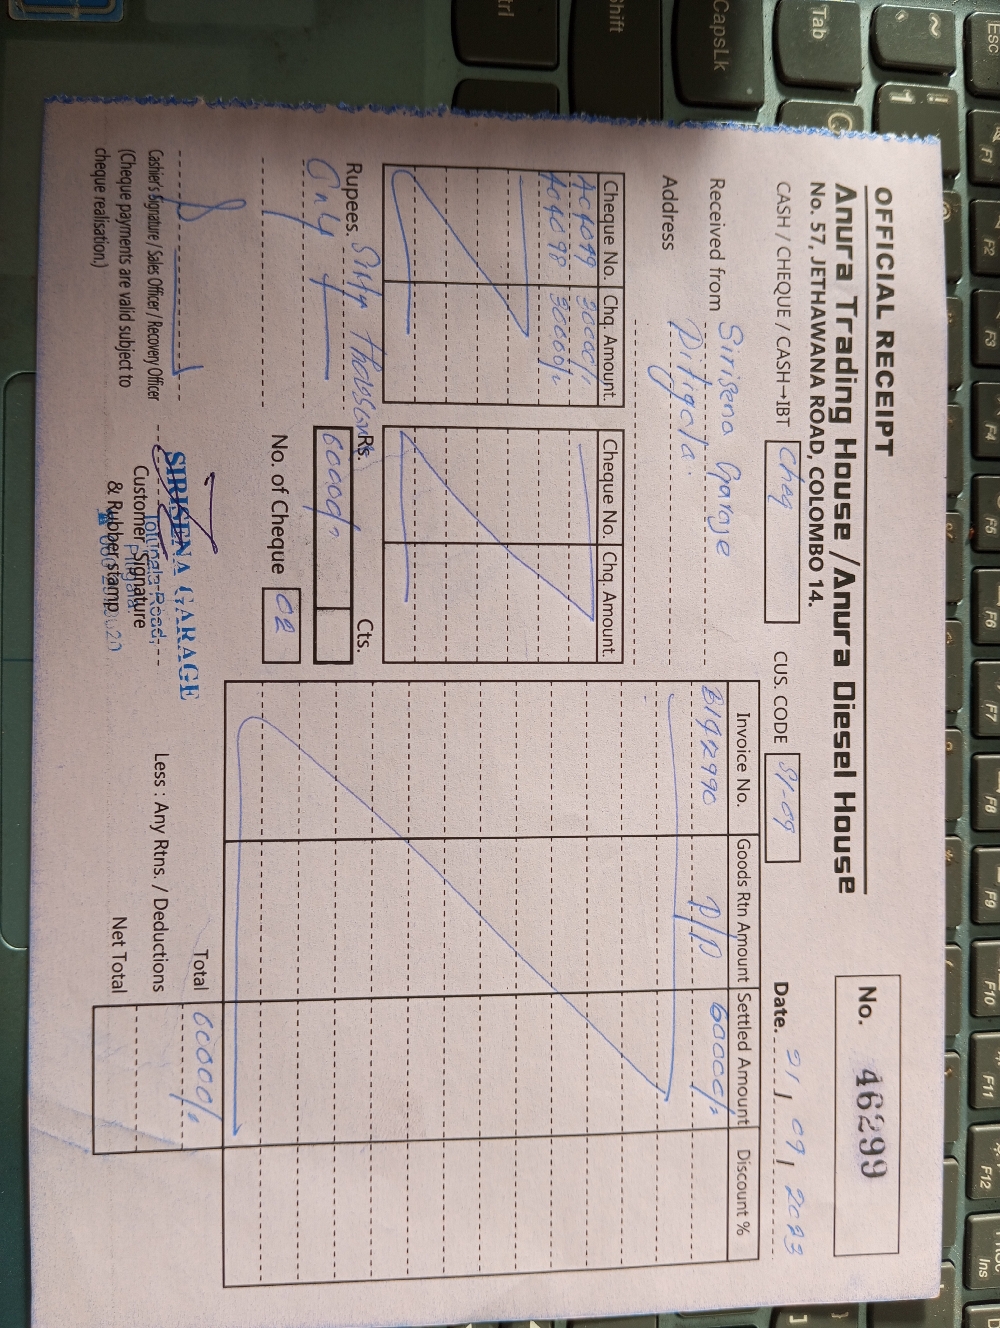 OFFICIAL RECEIPT
No. 46299
Anura Trading House / Anura Diesel House
No. 57, JETHAWANA ROAD, COLOMBO 14.
CASH / CHEQUE / CASH→IBT Cheq CUS. CODE SI-09 Date. 21 / 09 / 2023
Received from Sirisena Garage
Address Pitigala.
Cheque No. Chq. Amount. Cheque No. Chq. Amount.
30000/-
404098 30000/-
Invoice No. Goods Rtn Amount Settled Amount Discount %
B142990 P/P 60000/-
Rupees. Sixty Thousand
Only
Rs. Cts.
60000/-
No. of Cheque 02
Total 60000/-
Less : Any Rtns. / Deductions
Net Total
Cashier's Signature / Sales Officer / Recovery Officer
(Cheque payments are valid subject to
cheque realisation.)
SIRISENA GARAGE
Road,
Pitigala.
Customer Signature
& Rubber stamp